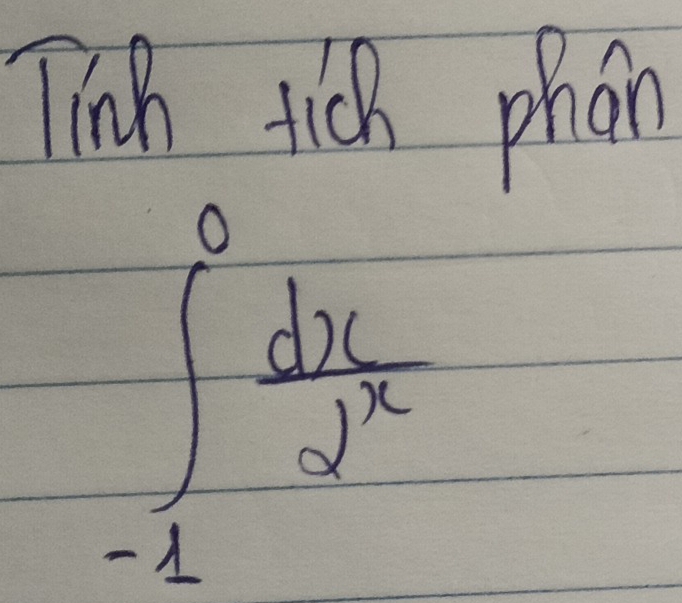 Tính tích phân
∫_{-1}^{0} \frac{dx}{2^x}